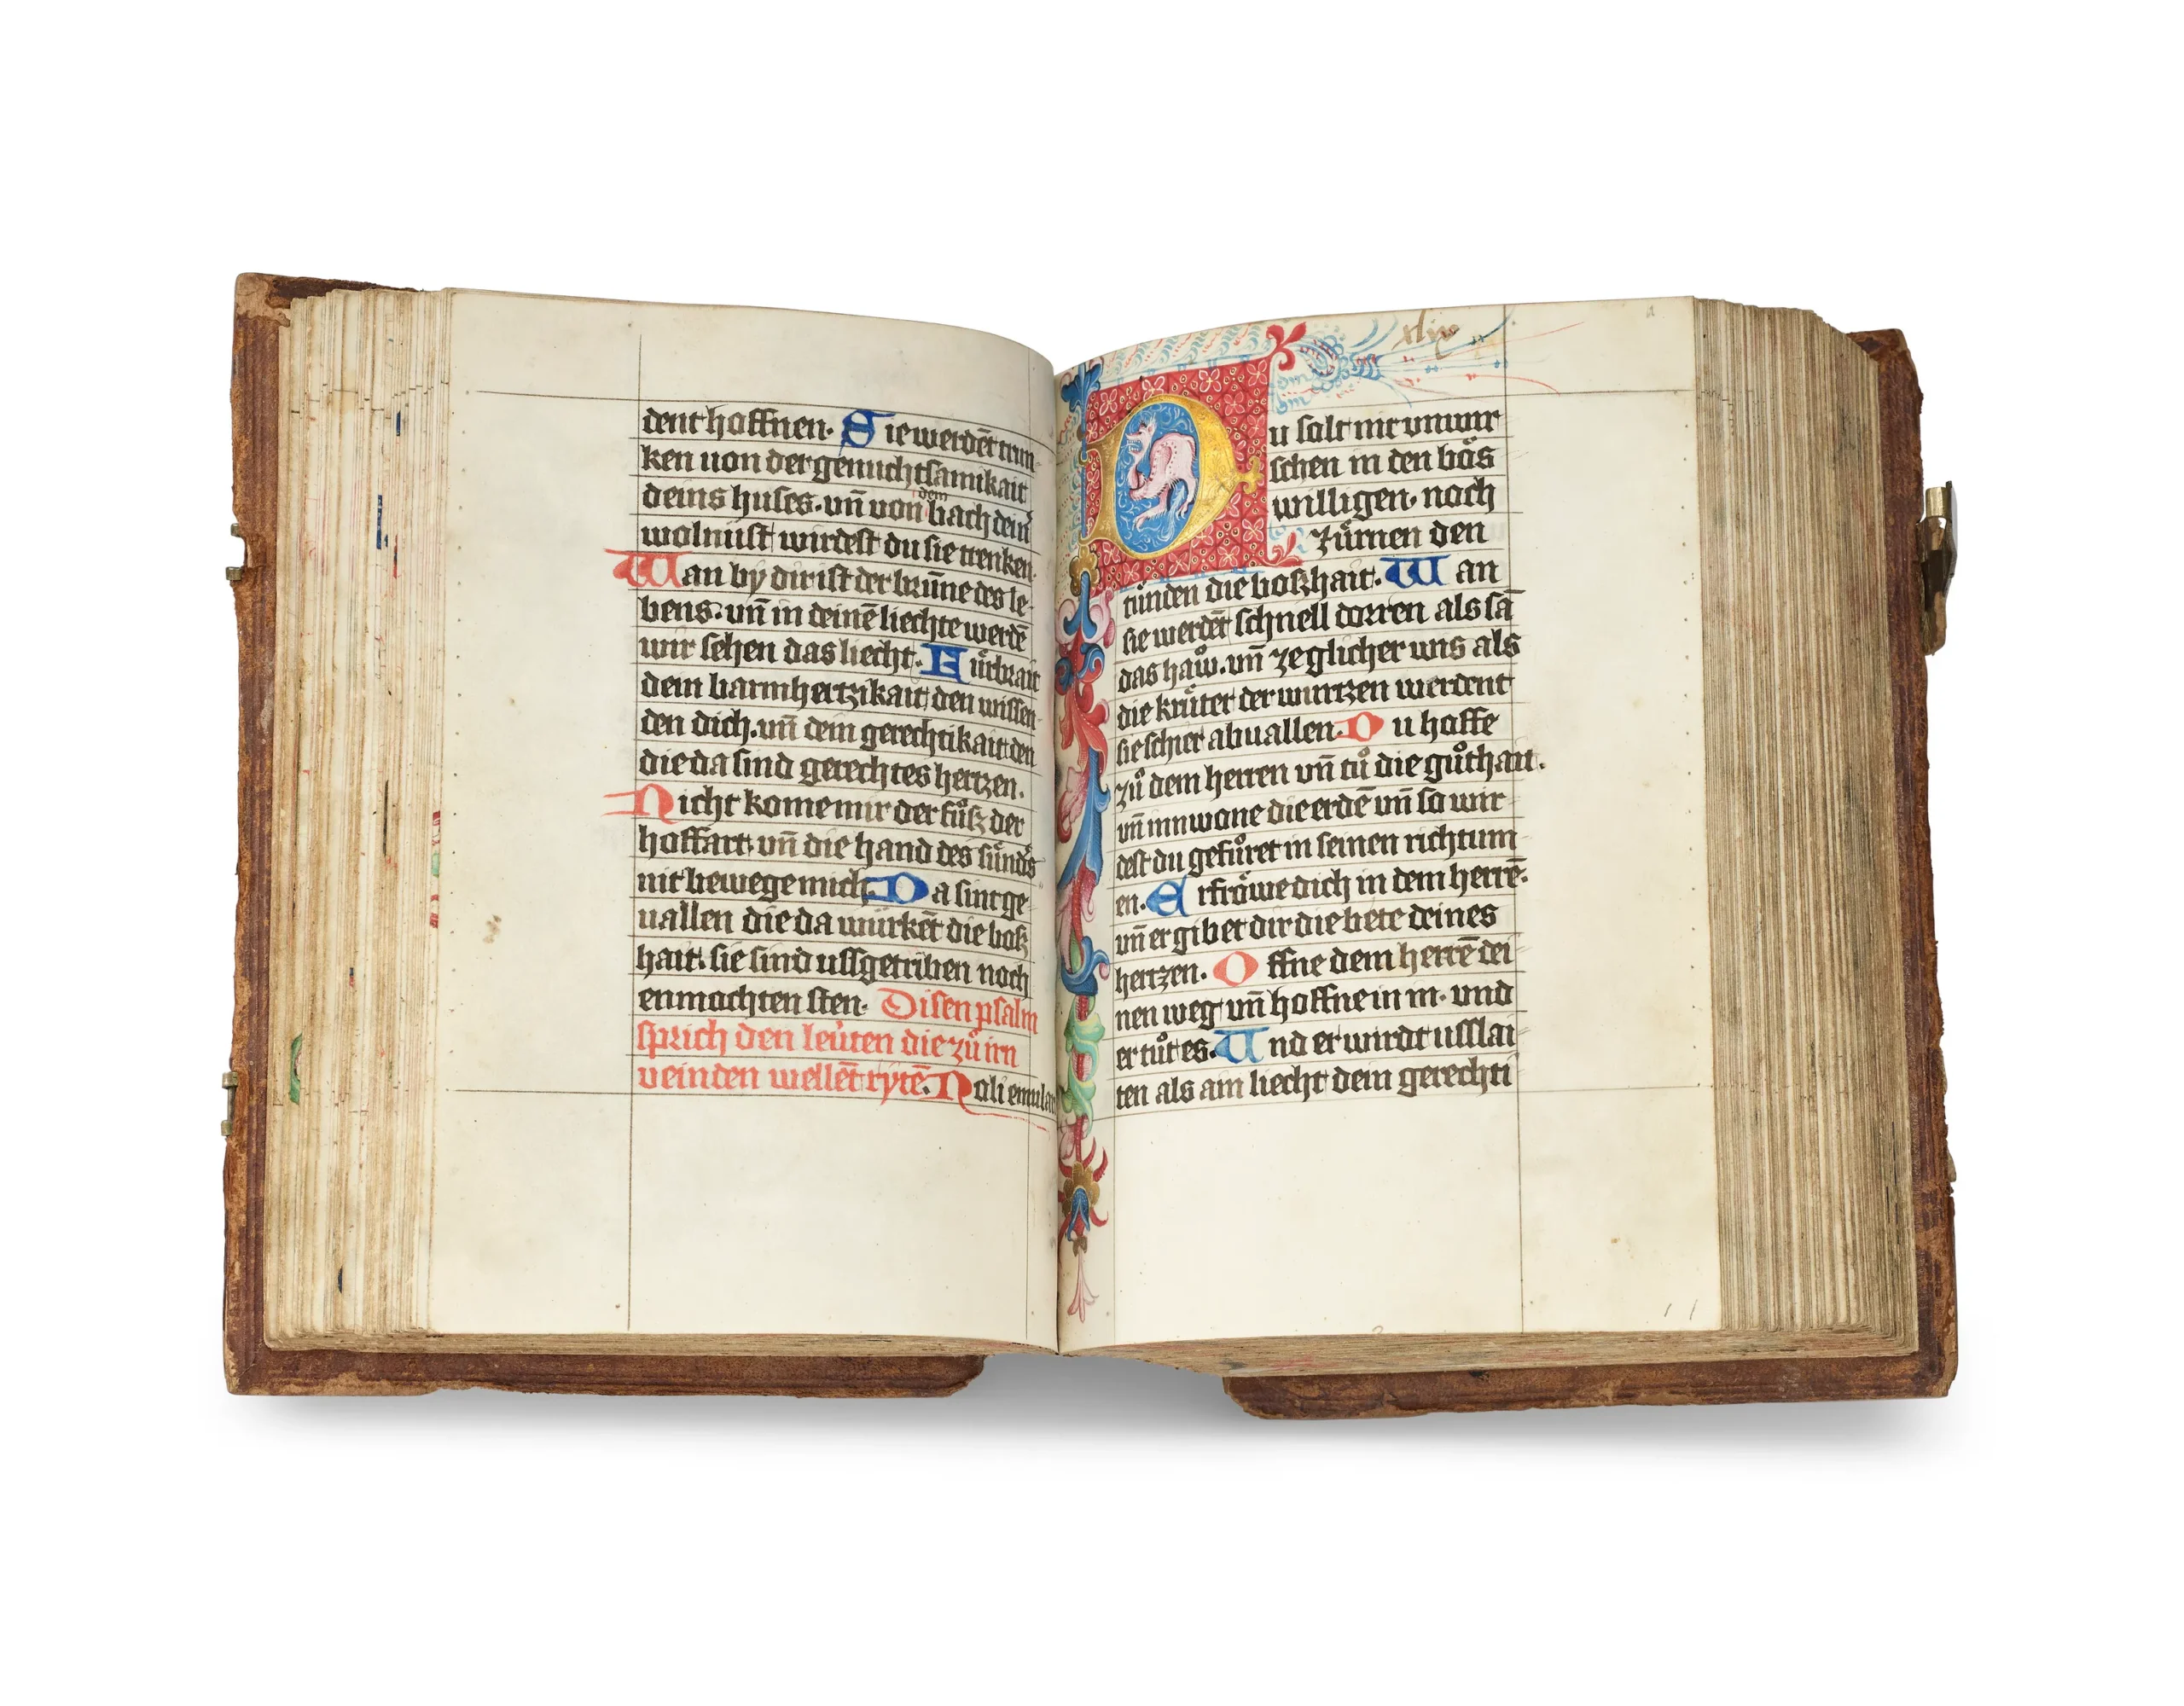 dent hoffnen. Sie werdēt trun
ken von der genuchtsamikait
deins huses. vn̄ von dem bach dein̄
wolnust wirdest du sie trenken.
Wan by dir ist der brūne des le
bens. vn̄ in deinē liechte werdē
wir sehen das liecht. Fúrbrait
dein barmhertzikait den wissen
den dich. vn̄ dein gerechtikait den
die da sind gerechtes hertzen.
Nicht kome mir der fůß der
hoffart. vn̄ die hand des súnds
nit bewege mich. Da sint ge
uallen die da würkēt die boß
hait. sie sind ussgetriben noch
enmochten sten. Disen psalm
sprich den leúten die zů irn
veinden wellēt rytē. Noli emulari
xlix
Du solt nit vnwir
schen in den bǒs
willigen. noch
zúrnen den
túnden die boßhait. Wan
sie werdēt schnell dorren als sā
das haw. vn̄ ze glicher wis als
die krúter der wurtzen werdent
sie schier abuallen. Du hoffe
zů dem herren vn̄ tů die gůthait.
vn̄ inwone die erdē vn̄ so wir
dest du gefůret in seinen richtum
en. Erfrǒwe dich in dem herrē.
vn̄ er gibet dir die bete deines
hertzen. Offne dem herrē dei
nen weg vn̄ hoffne in in. vnd
er tůt es. Und er wirdt usslai
ten als ain liecht dein gerechti